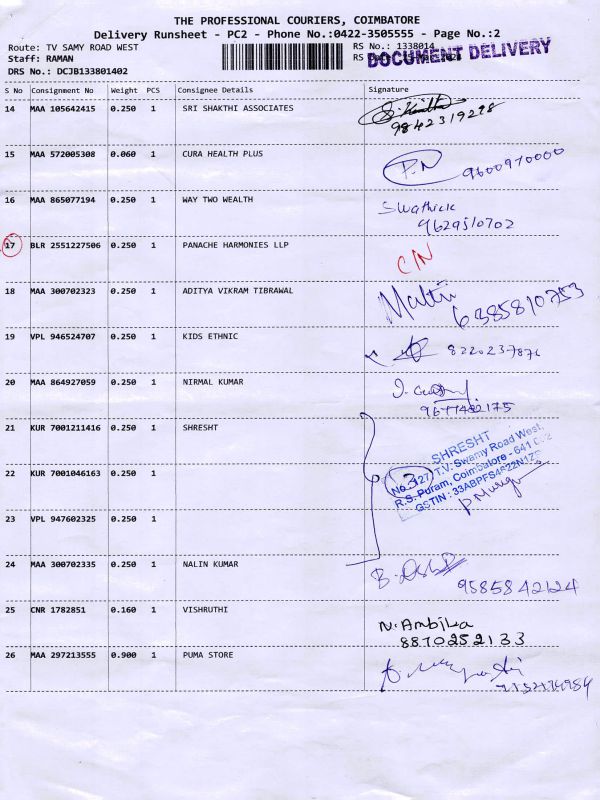 THE PROFESSIONAL COURIERS, COIMBATORE
Delivery Runsheet - PC2 - Phone No.:0422-3505555 - Page No.:2
Route: TV SAMY ROAD WEST RS No.: 1338014
Staff: RAMAN RS DOCUMENT DELIVERY
DRS No.: DCJB133801402
S No Consignment No Weight PCS Consignee Details Signature
14 MAA 105642415 0.250 1 SRI SHAKTHI ASSOCIATES
9842319298
15 MAA 572005308 0.060 1 CURA HEALTH PLUS
P.N 9600970000
16 MAA 865077194 0.250 1 WAY TWO WEALTH Swathick
9629510702
17 BLR 2551227506 0.250 1 PANACHE HARMONIES LLP
C/N
18 MAA 300702323 0.250 1 ADITYA VIKRAM TIBRAWAL Maltri
6385810753
19 VPL 946524707 0.250 1 KIDS ETHNIC
8220237876
20 MAA 864927059 0.250 1 NIRMAL KUMAR
9677482175
21 KUR 7001211416 0.250 1 SHRESHT
SHRESHT
No.3/27, T.V. Swamy Road West,
R.S. Puram, Coimbatore - 641 002
GSTIN : 33ABPFS4622N1Z
22 KUR 7001046163 0.250 1
23 VPL 947602325 0.250 1
24 MAA 300702335 0.250 1 NALIN KUMAR
9585842124
25 CNR 1782851 0.160 1 VISHRUTHI N. Ambika
8870252133
26 MAA 297213555 0.900 1 PUMA STORE